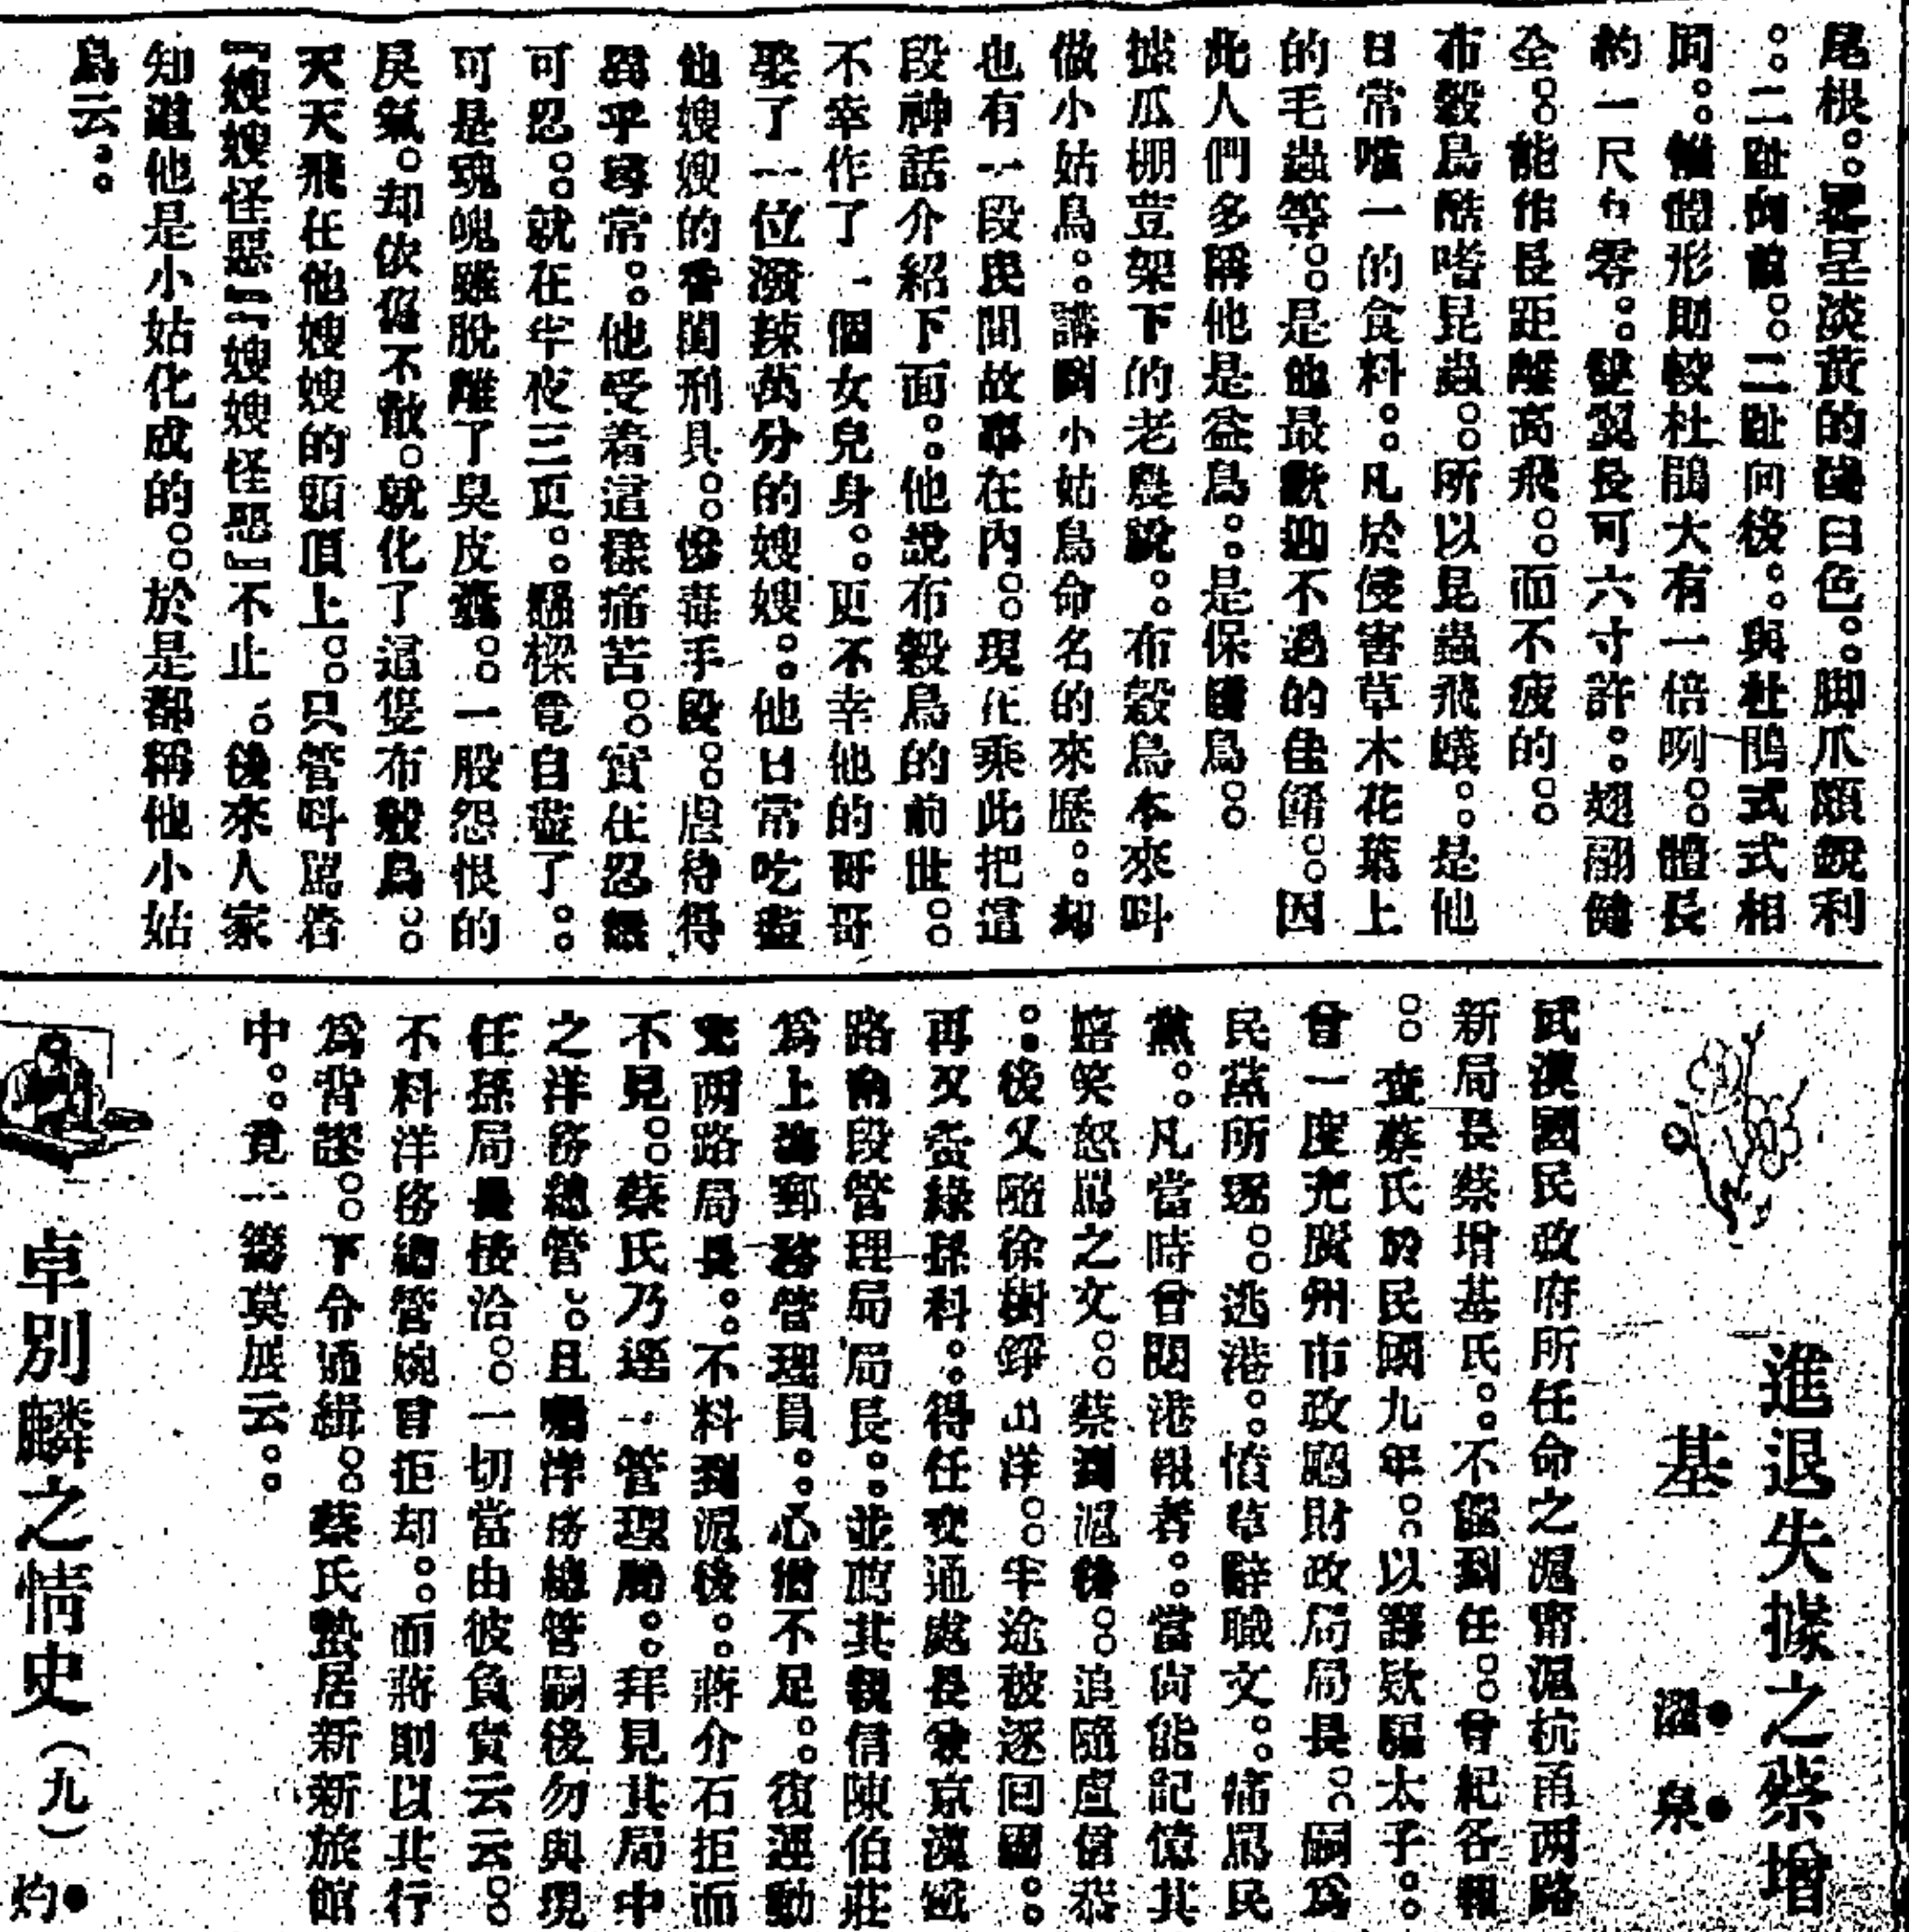 尾根。。畧呈淡黄的淺白色。。脚爪頗銳利
。。二趾向前。。二趾向後。。與杜鵑式式相
同。。惟體形則較杜鵑大有一倍咧。。體長
約一尺有零。。雙翼長可六寸許。。翅翮健
全。。能作長距離高飛。。而不疲的。。
布穀鳥酷嗜昆蟲。。所以昆蟲飛蟻。。是他
日常唯一的食料。。凡於侵害草木花葉上
的毛蟲等。。是他最歡迎不過的佳餚。。因
此人們多稱他是益鳥。。是保國鳥。。
據瓜棚荳架下的老農說。。布穀鳥本來呌
做小姑鳥。。講到小姑鳥命名的來歷。。却
也有一段民間故事在內。。現在乘此把這
段神話介紹下面。。他說布穀鳥的前世。。
不幸作了一個女兒身。。更不幸他的哥哥
娶了一位潑辣萬分的嫂嫂。。他日常吃盡
他嫂嫂的香閨刑具。。慘毒手段。。虐待得
異乎尋常。。他受着這樣痛苦。。實在忍無
可忍。。就在半夜三更。。懸樑竟自盡了。。
可是魂魄雖脫離了臭皮囊。。一股怨恨的
戾氣。却依舊不散。就化了這隻布穀鳥。。
天天飛在他嫂嫂的頭頂上。。只管呌罵着
『嫂嫂怪惡』『嫂嫂怪惡』不止。。後來人家
知道他是小姑化成的。。於是都稱他小姑
鳥云。。
進退失據之蔡增
基
●溫●泉
武漢國民政府所任命之滬甯滬杭甬两路
新局長蔡增基氏。。不能到任。。曾紀各報
。。查蔡氏於民國九年。。以譚欵騙太子。。
曾一度充廣州市政廳財政局局長。。嗣爲
民黨所逐。。逃港。。憤草辭職文。。痛罵民
黨。。凡當時曾閱港報者。。當尙能記憶其
嬉笑怒罵之文。。蔡到滬後。。追隨盧信恭
。。後又隨徐樹錚出洋。。半途被逐囘國。。
再又夤緣孫科。。得任交通處長兼京漢鐵
路南段管理局局長。。並薦其親信陳伯莊
爲上海郵務管理員。。心猶不足。。復運動
兼两路局長。。不料到滬後。。蔣介石拒而
不見。。蔡氏乃逕一管理局。。拜見其局中
之洋務總管。。且囑洋務總管嗣後勿與現
任孫局長接洽。。一切當由彼負責云云。。
不料洋務總管婉言拒却。。而蔣則以其行
爲背謬。。下令通緝。。蔡氏蟄居新新旅館
中。。竟一籌莫展云。。
卓別麟之情史（九）
●灼